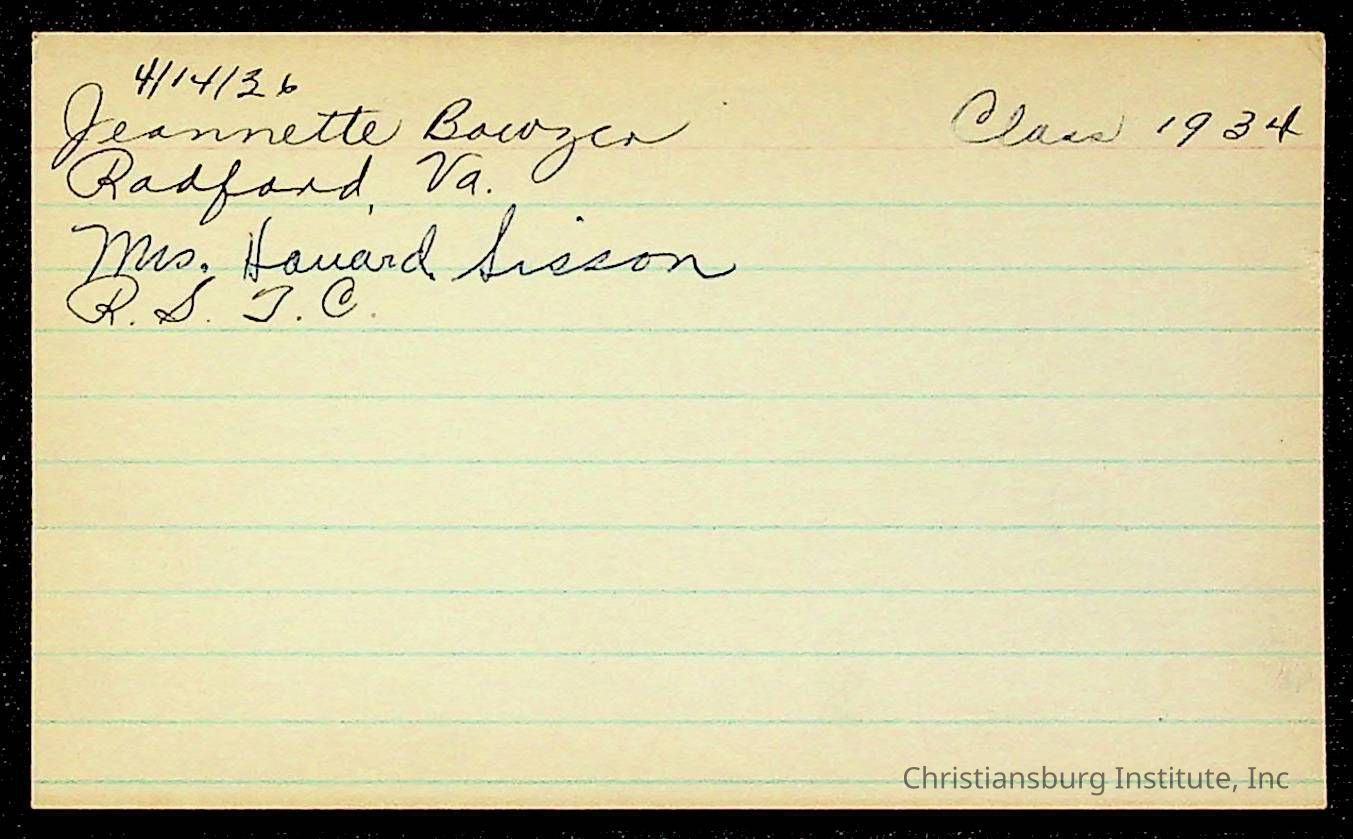 4/14/36
Jeannette Bowzer Class 1934
Radford, Va.
Mrs. Howard Sisson
R. S. T. C.
Christiansburg Institute, Inc